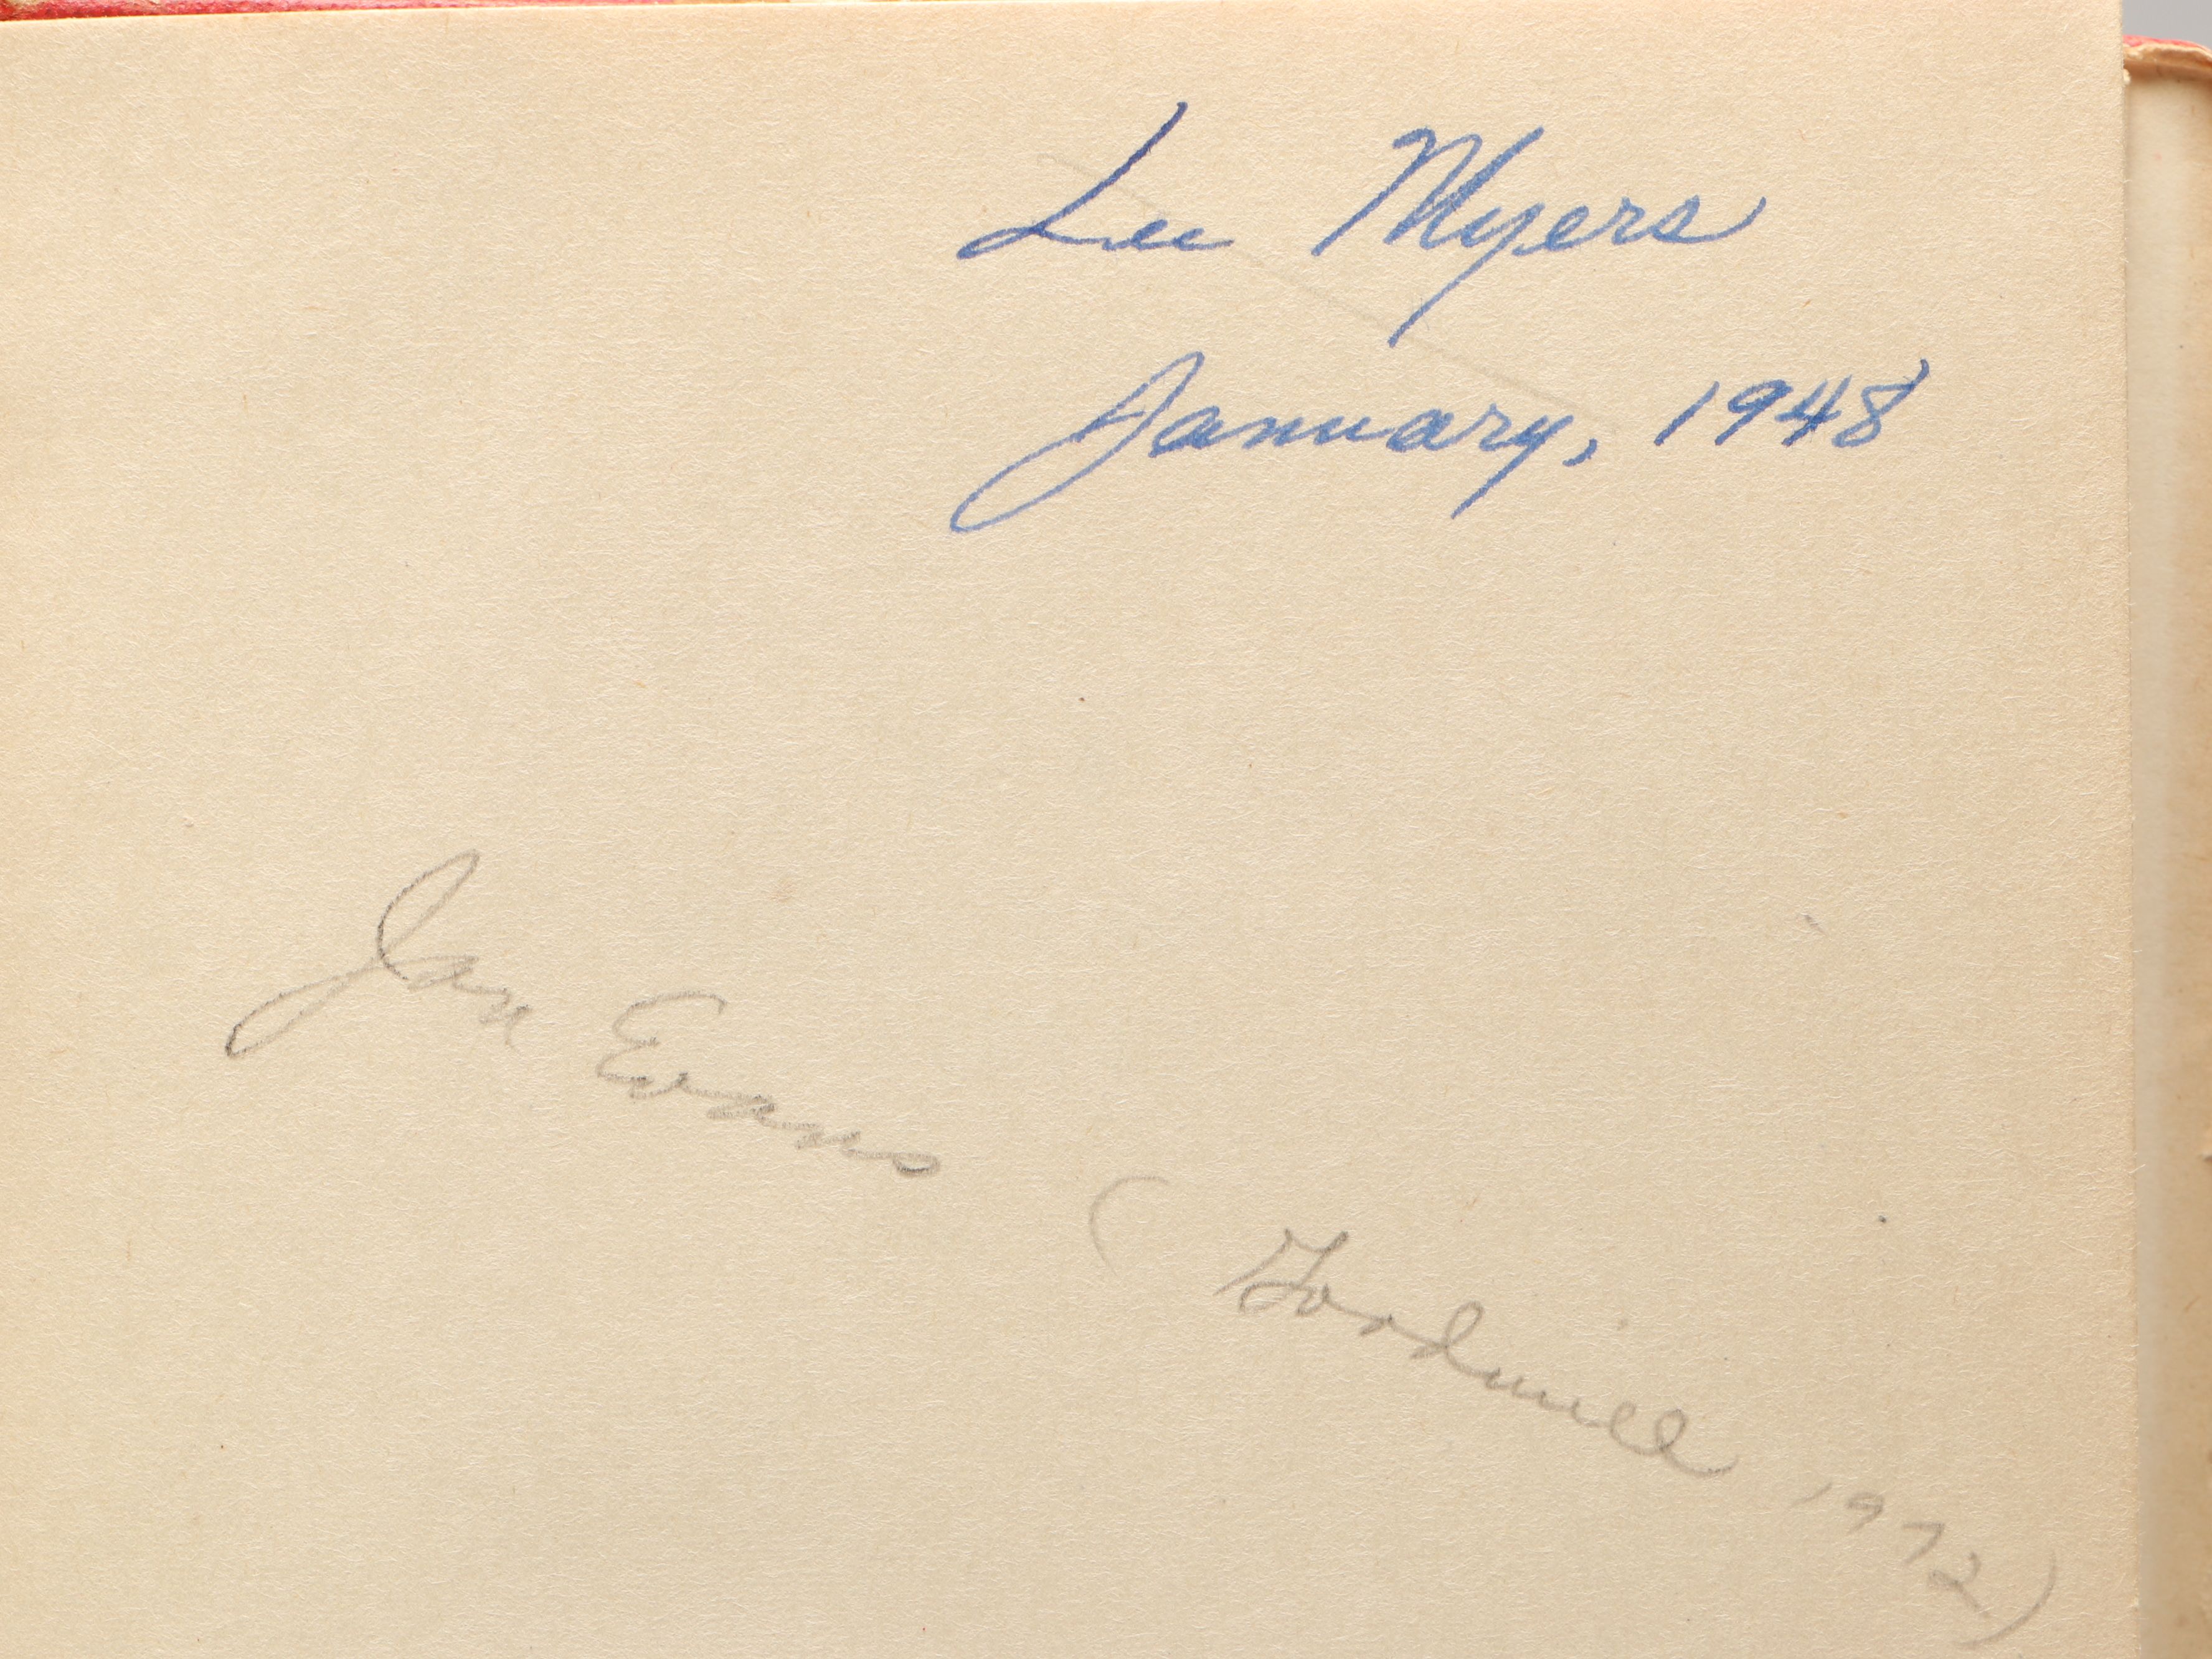 Lee Myers
January, 1948
Jan Evans ( Goodwill 1972)